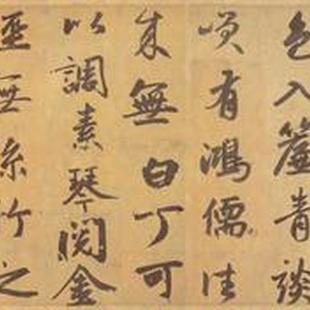 色入簾青談
咲有鴻儒往
來無白丁可
以調素琴閱金
經無絲竹之